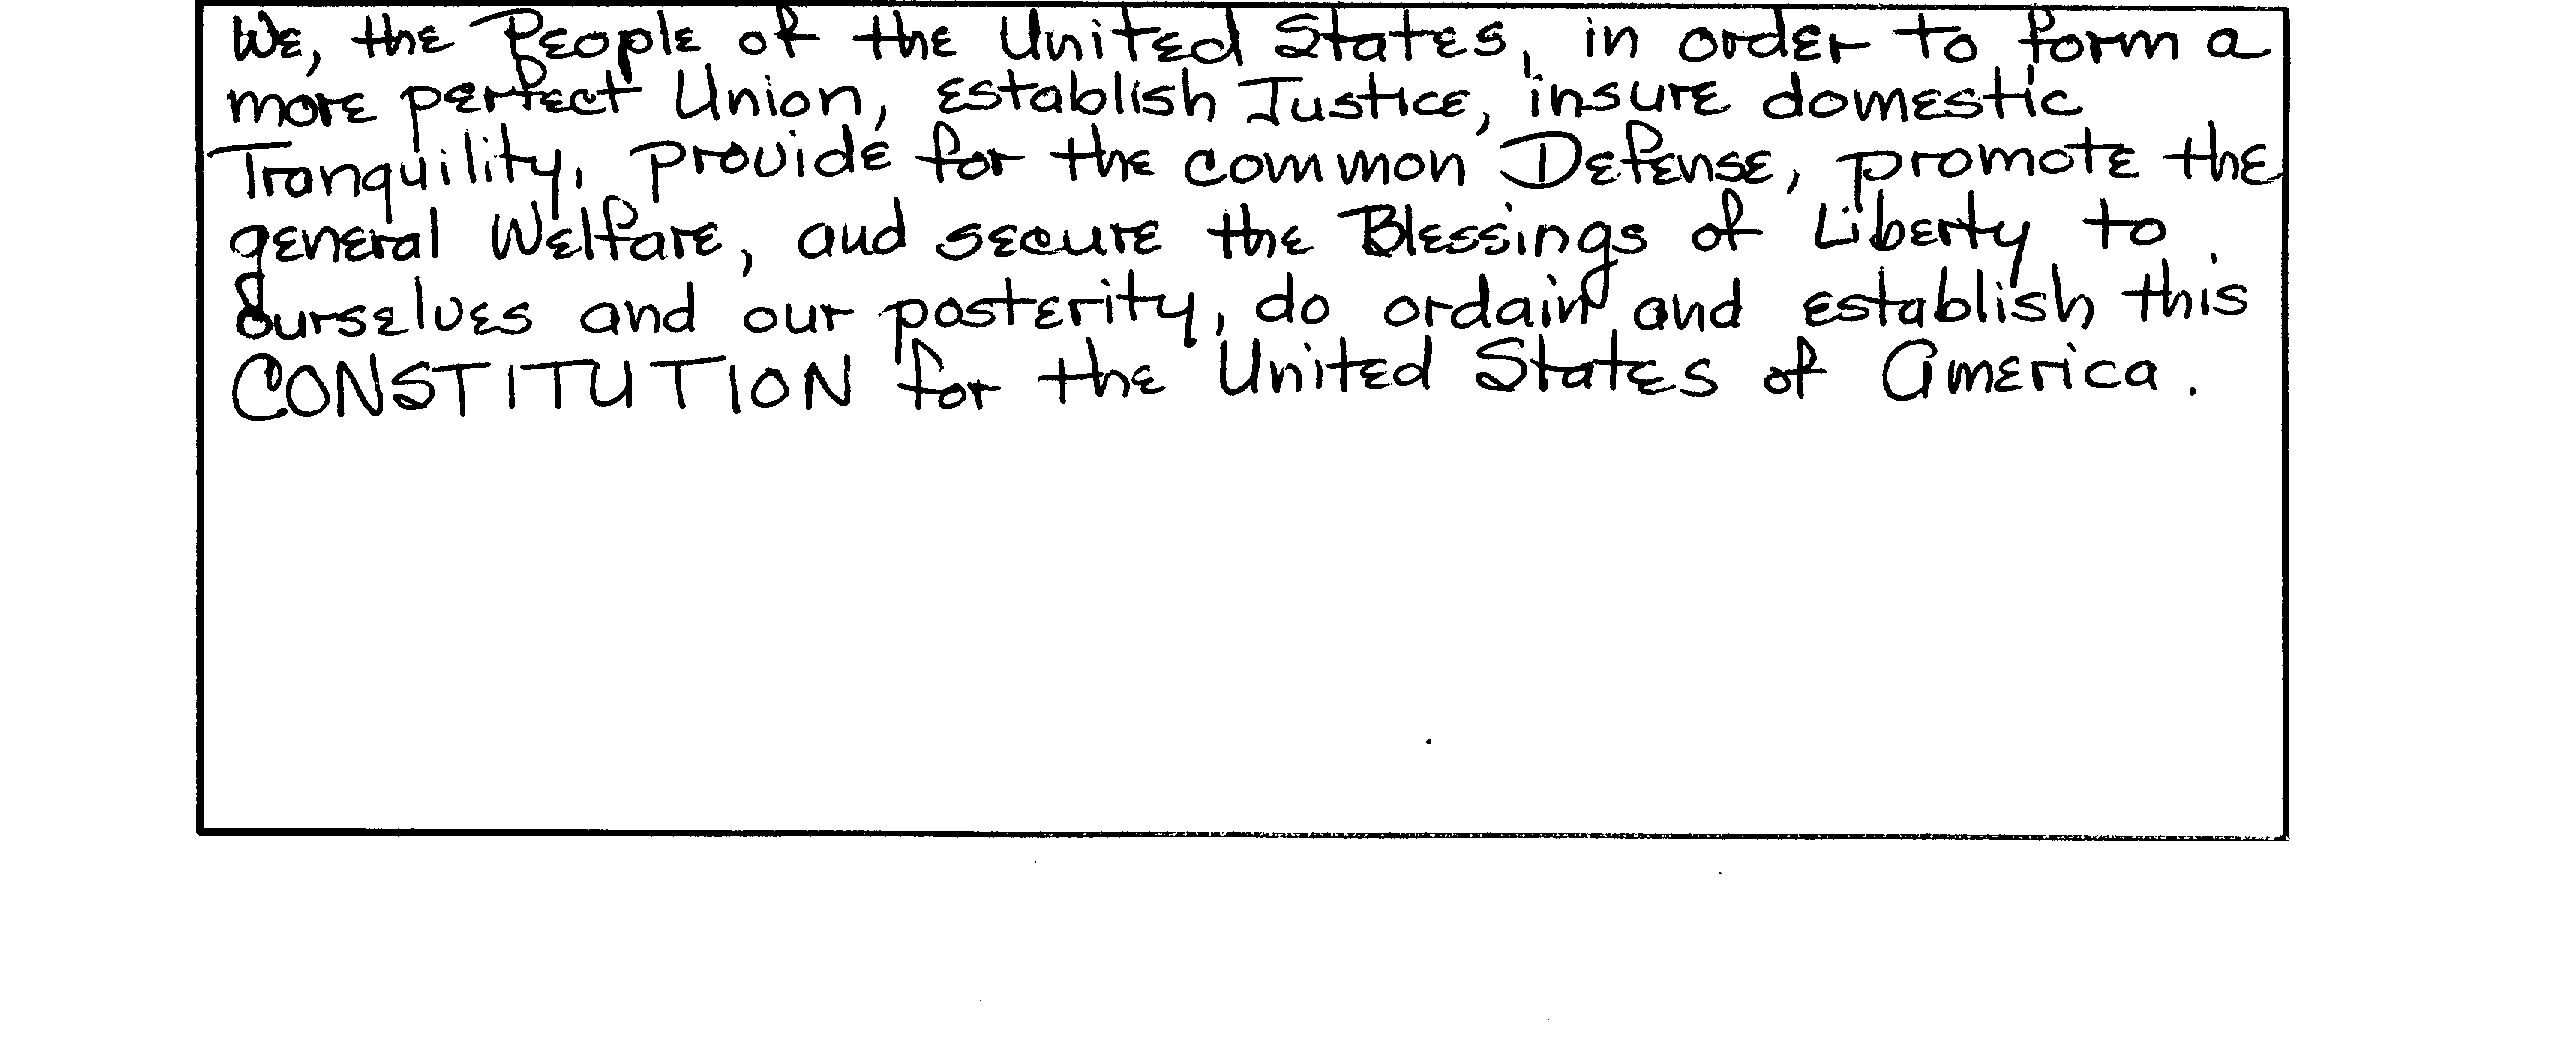 We, the People of the United States, in order to form a
more perfect Union, establish Justice, insure domestic
Tranquility, provide for the common Defense, promote the
general Welfare, and secure the Blessings of Liberty to
ourselves and our posterity, do ordain and establish this
CONSTITUTION for the United States of America.